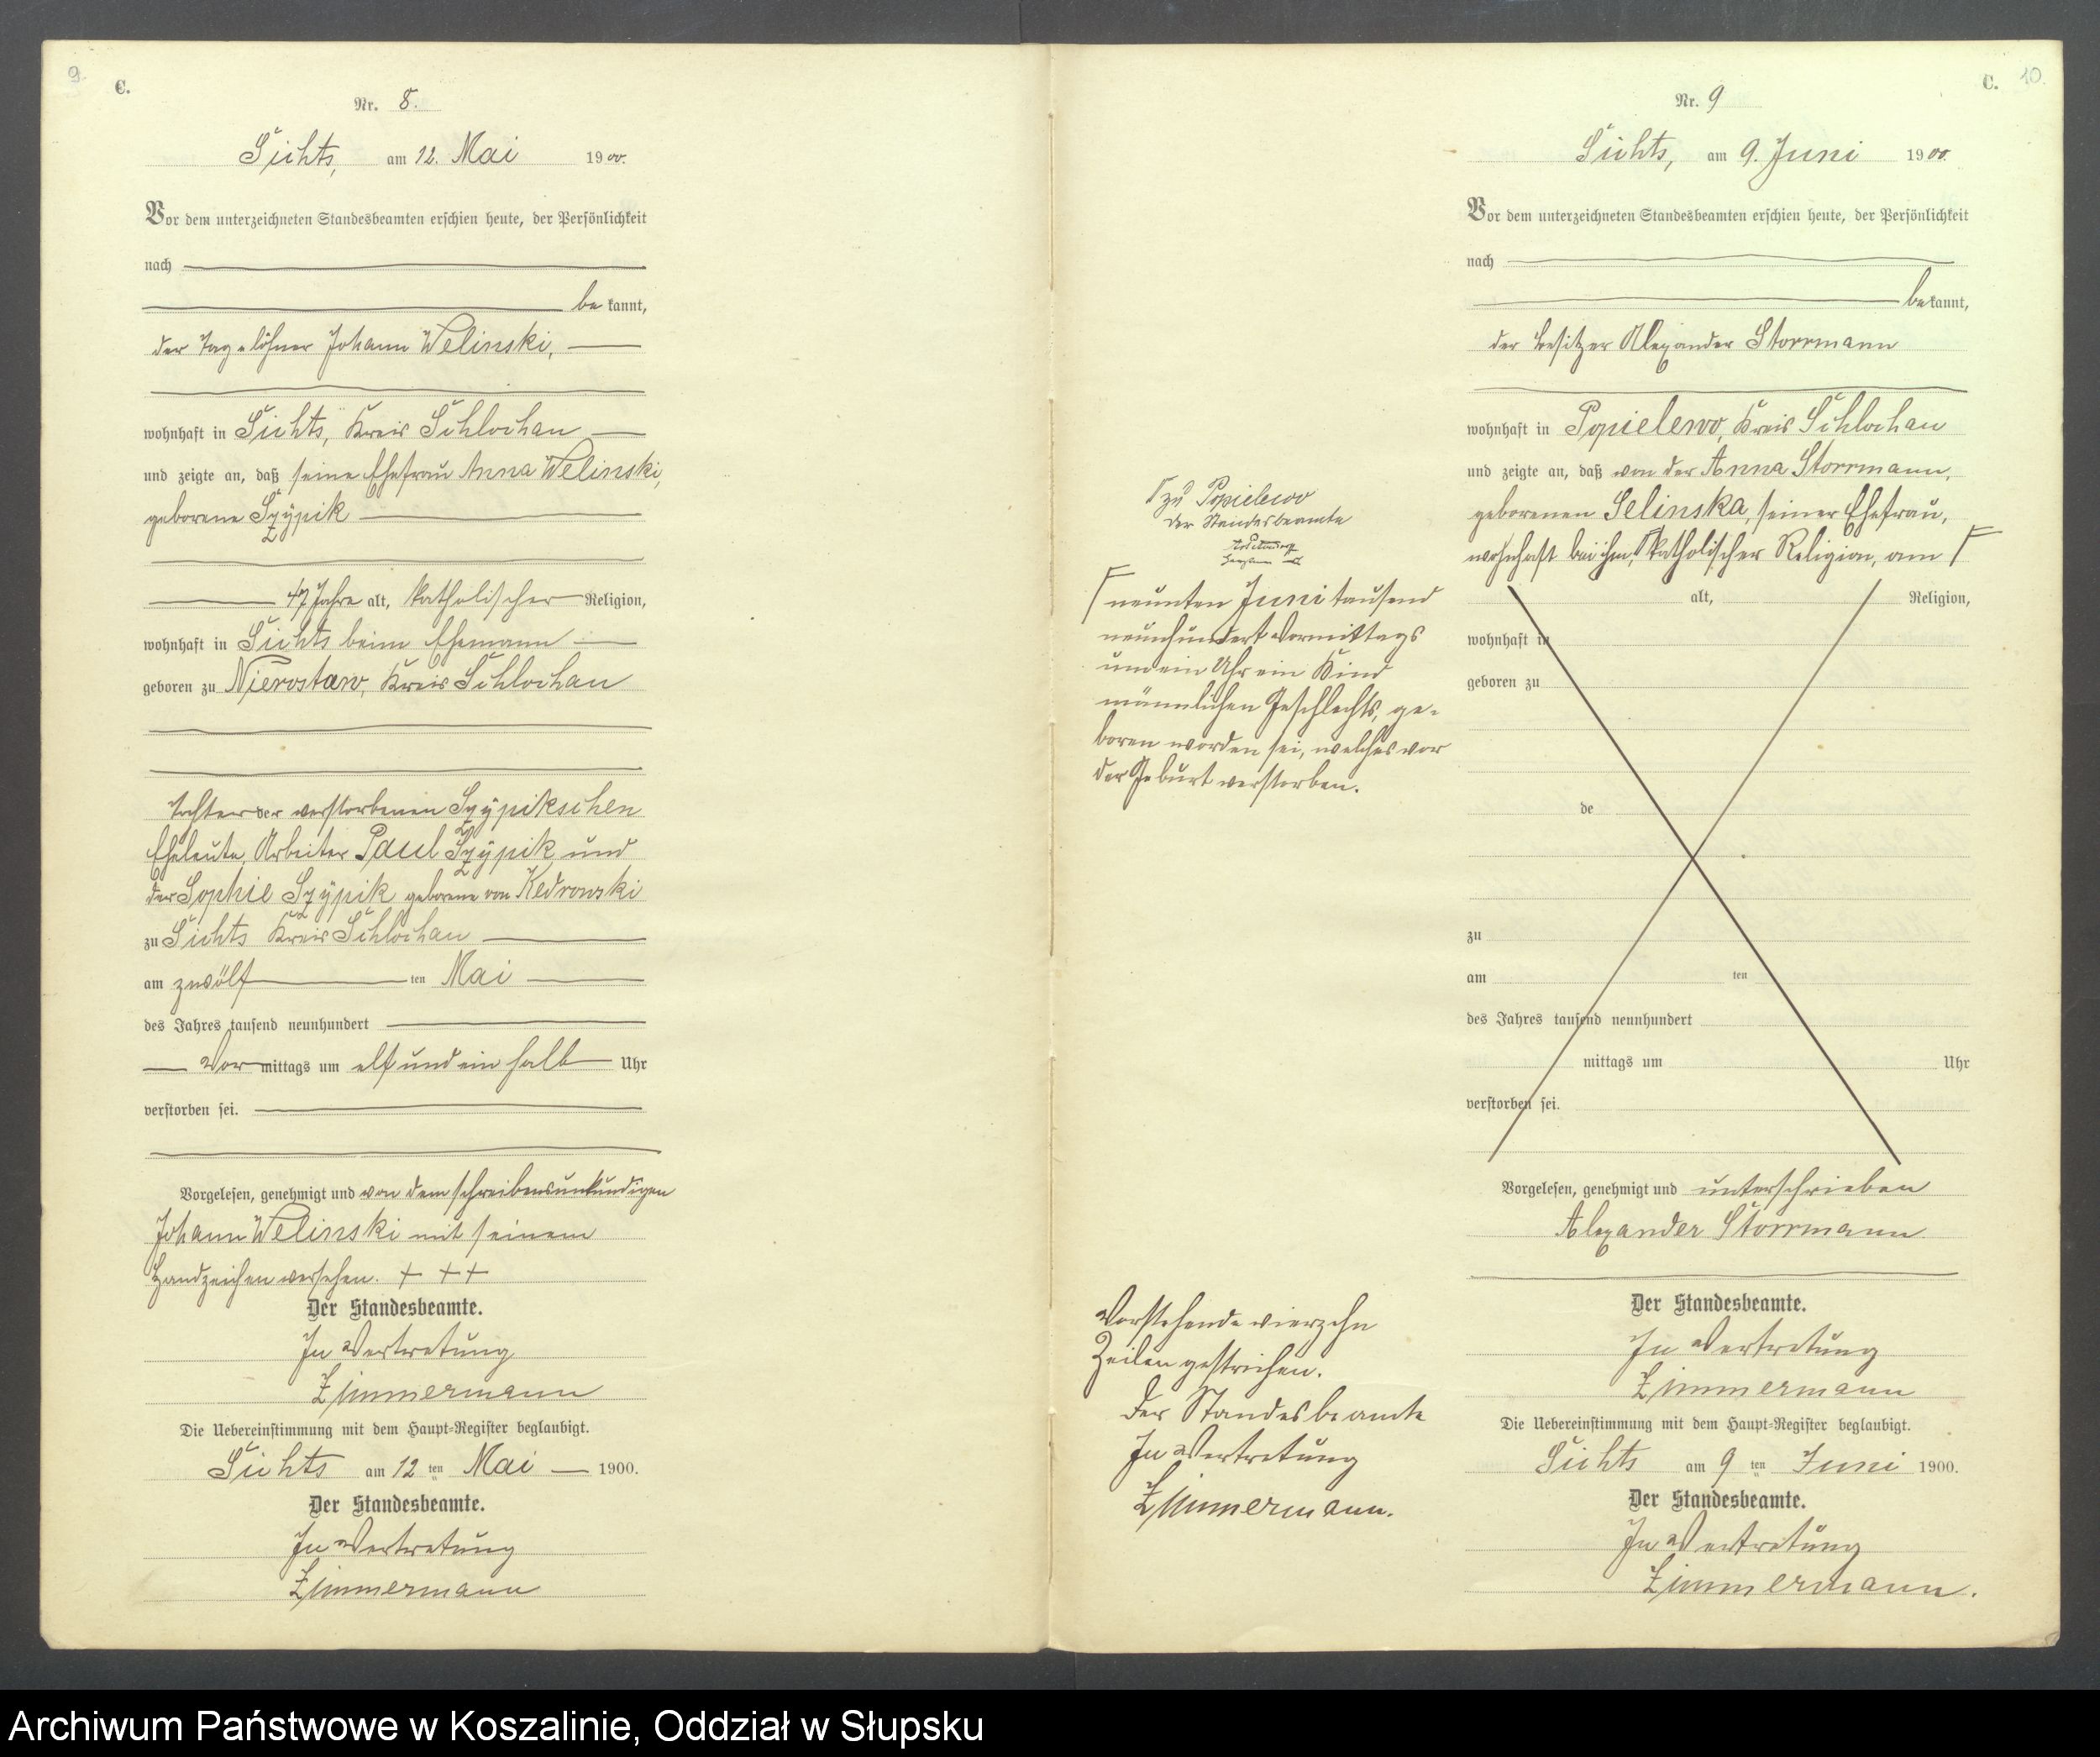 9.
C.
Nr. 8.
Sichts, am 12. Mai 1900.
Vor dem unterzeichneten Standesbeamten erschien heute, der Persönlichkeit
nach
be kannt,
der Tagelöhner Johann Welinski,
wohnhaft in Sichts, Kreis Schlochau
und zeigte an, daß seine Ehefrau Anna Welinski,
geborene Szÿpik
47 Jahre alt, katholischer Religion,
wohnhaft in Sichts beim Ehemann
geboren zu Nierostaw, Kreis Schlochau
Tochter der verstorbenen Szÿpikschen
Eheleute, Arbeiter Paul Szÿpik und
der Sophie Szÿpik geborene von Kedrowski
zu Sichts Kreis Schlochau
am zwölf ten Mai
des Jahres tausend neunhundert
Vor mittags um elf und ein halb Uhr
verstorben sei.
Vorgelesen, genehmigt und von dem schreibensunkundigen
Johann Welinski mit seinem
Handzeichen versehen. + ++
Der Standesbeamte.
In Vertretung
Zimmermann
Die Uebereinstimmung mit dem Haupt-Register beglaubigt.
Sichts am 12 ten Mai 1900.
Der Standesbeamte.
In Vertretung
Zimmermann
C. 10.
Nr. 9
Sichts, am 9. Juni 1900.
Vor dem unterzeichneten Standesbeamten erschien heute, der Persönlichkeit
nach
be kannt,
der Besitzer Alexander Storrmann
wohnhaft in Popielewo, Kreis Schlochau
und zeigte an, daß von der Anna Storrmann,
geborenen Selinska, seiner Ehefrau,
wohnhaft bei ihm, katholischer Religion, am
zu Popielewo
der Standesbeamte
neunten Juni tausend
neunhundert Vormittags
um ein Uhr ein Kind
männlichen Geschlechts, ge-
boren worden sei, welches vor
der Geburt verstorben.
alt, Religion,
wohnhaft in
geboren zu
de
zu
am ten
des Jahres tausend neunhundert
mittags um Uhr
verstorben sei.
Vorstehende vierzehn
Zeilen gestrichen.
Der Standesbeamte
In Vertretung
Zimmermann.
Vorgelesen, genehmigt und unterschrieben
Alexander Storrmann
Der Standesbeamte.
In Vertretung
Zimmermann
Die Uebereinstimmung mit dem Haupt-Register beglaubigt.
Sichts am 9 ten Juni 1900.
Der Standesbeamte.
In Vertretung
Zimmermann.
Archiwum Państwowe w Koszalinie, Oddział w Słupsku